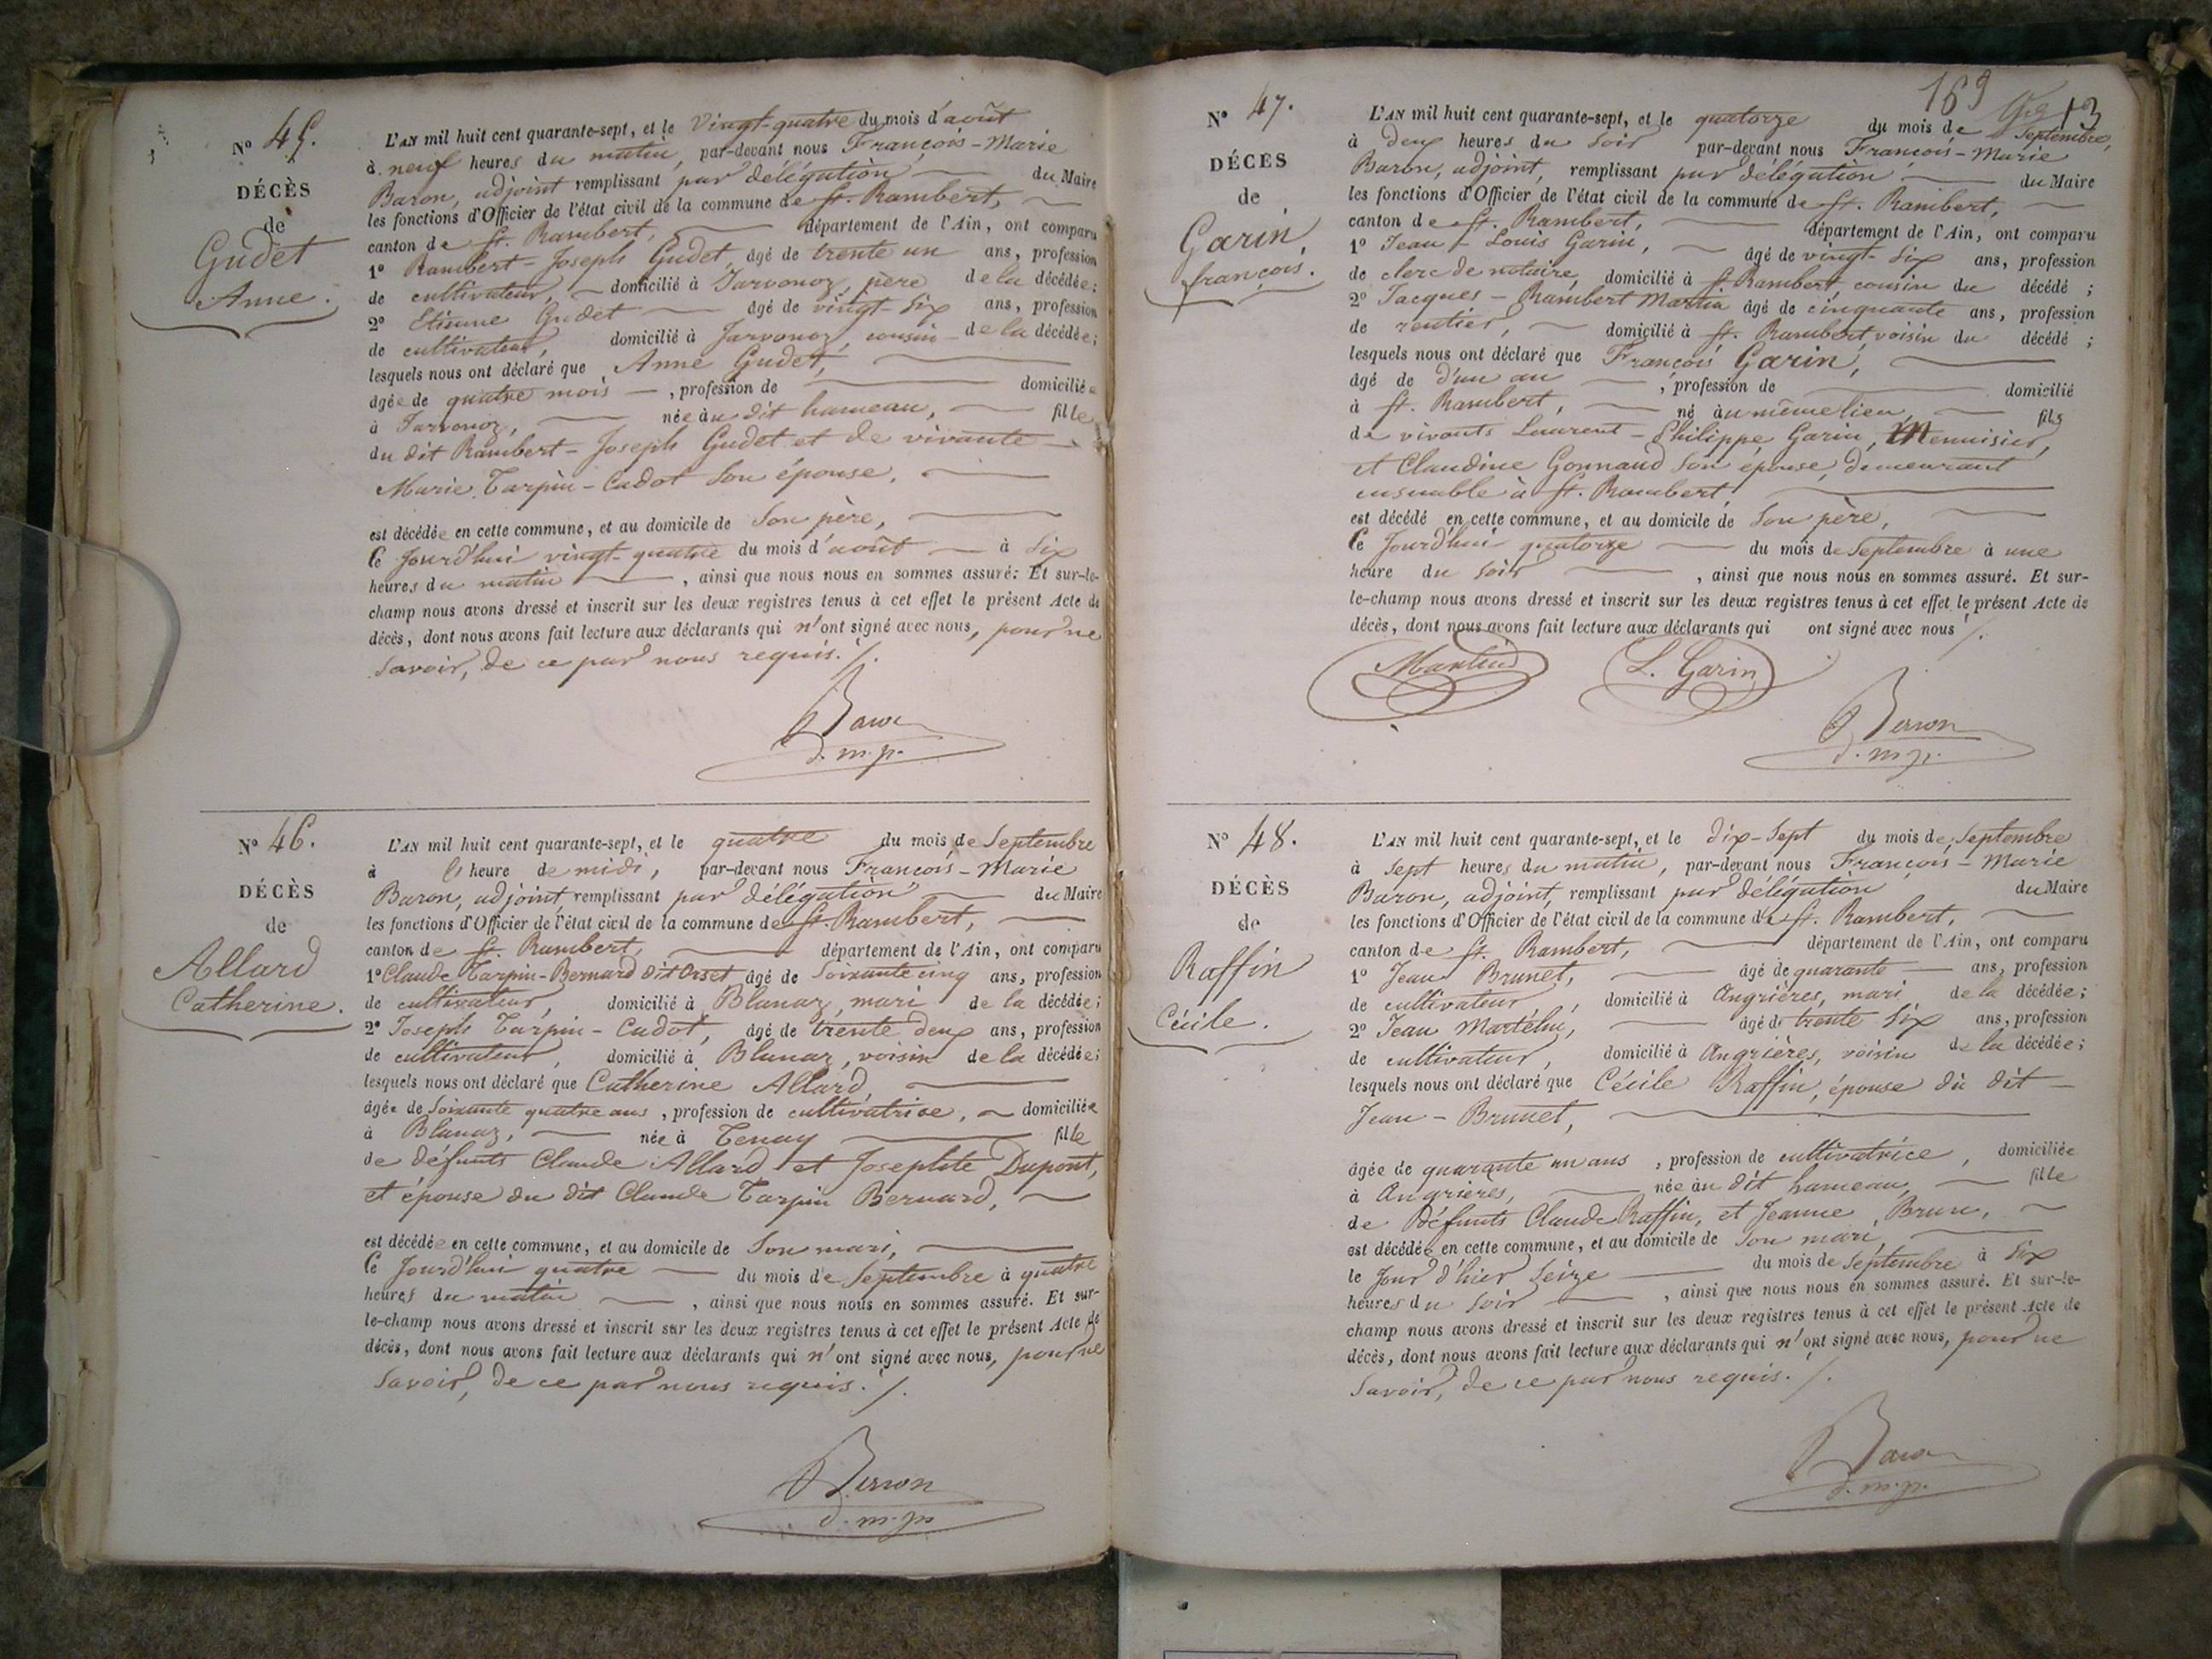 N° 45.
DÉCÈS
de
Gudet
Anne.
L'AN mil huit cent quarante-sept, et le vingt-quatre du mois d'août
à neuf heures du matin, par-devant nous François-Marie
Baron, adjoint remplissant par délégation du Maire
les fonctions d'Officier de l'état civil de la commune de St. Rambert,
canton de St. Rambert, département de l'Ain, ont comparu
1° Rambert-Joseph Gudet, âgé de trente un ans, profession
de cultivateur, domicilié à Javonoz, père de la décédée;
2° Etienne Gudet âgé de vingt-six ans, profession
de cultivateur, domicilié à Javonoz, cousin de la décédée;
lesquels nous ont déclaré que Anne Gudet,
âgée de quatre mois, profession de domiciliée
à Javonoz, née au dit hameau, fille
du dit Rambert-Joseph Gudet et de vivante
Marie Tarpin-Cadot son épouse,
est décédée en cette commune, et au domicile de son père,
Ce jourd'hui vingt-quatre du mois d'août à six
heures du matin, ainsi que nous nous en sommes assuré: Et sur-le-
champ nous avons dressé et inscrit sur les deux registres tenus à cet effet le présent Acte de
décès, dont nous avons fait lecture aux déclarants qui n'ont signé avec nous, pour ne
savoir, de ce par nous requis./.
Baron
d.m.p.
N° 46.
DÉCÈS
de
Allard
Catherine.
L'AN mil huit cent quarante-sept, et le quatre du mois de Septembre
à l'heure de midi, par-devant nous François-Marie
Baron, adjoint remplissant par délégation du Maire
les fonctions d'Officier de l'état civil de la commune de St. Rambert,
canton de St. Rambert, département de l'Ain, ont comparu
1° Claude Tarpin-Bernard dit Orset âgé de soixante cinq ans, profession
de cultivateur, domicilié à Blanaz, mari de la décédée;
2° Joseph Tarpin-Cadot, âgé de trente deux ans, profession
de cultivateur, domicilié à Blanaz, voisin de la décédée;
lesquels nous ont déclaré que Catherine Allard,
âgée de soixante quatre ans, profession de cultivatrice, domiciliée
à Blanaz, née à Tenay fille
de défunts Claude Allard et Josephte Dupont,
et épouse du dit Claude Tarpin Bernard,
est décédée en cette commune, et au domicile de son mari,
Ce jourd'hui quatre du mois de Septembre à quatre
heures du matin, ainsi que nous nous en sommes assuré. Et sur-
le-champ nous avons dressé et inscrit sur les deux registres tenus à cet effet le présent Acte de
décès, dont nous avons fait lecture aux déclarants qui n'ont signé avec nous, pour ne
savoir, de ce par nous requis./.
Baron
d.m.p.
169
13
N° 47.
DÉCÈS
de
Garin,
françois.
L'AN mil huit cent quarante-sept, et le quatorze du mois de Septembre,
à deux heures du soir par-devant nous François-Marie
Baron, adjoint, remplissant par délégation du Maire
les fonctions d'Officier de l'état civil de la commune de St. Rambert,
canton de St. Rambert, département de l'Ain, ont comparu
1° Jean-Louis Garin, âgé de vingt-six ans, profession
de clerc de notaire, domicilié à St Rambert, cousin du décédé;
2° Jacques-Rambert Martin âgé de cinquante ans, profession
de rentier, domicilié à St. Rambert voisin du décédé;
lesquels nous ont déclaré que François Garin,
âgé de d'un an, profession de domicilié
à St. Rambert, né au même lieu, fils
de vivants Laurent-Philippe Garin, Menuisier,
et Claudine Gonnaud son épouse, demeurant
ensemble à St. Rambert,
est décédé en cette commune, et au domicile de son père,
Ce jourd'hui quatorze du mois de Septembre à une
heure du soir, ainsi que nous nous en sommes assuré. Et sur-
le-champ nous avons dressé et inscrit sur les deux registres tenus à cet effet le présent Acte de
décès, dont nous avons fait lecture aux déclarants qui ont signé avec nous /.
Martin L. Garin
Baron
d.m.p.
N° 48.
DÉCÈS
de
Raffin
Cécile.
L'AN mil huit cent quarante-sept, et le dix-sept du mois de Septembre
à sept heures du matin, par-devant nous François-Marie
Baron, adjoint, remplissant par délégation du Maire
les fonctions d'Officier de l'état civil de la commune de St. Rambert,
canton de St. Rambert, département de l'Ain, ont comparu
1° Jean Brunet, âgé de quarante ans, profession
de cultivateur, domicilié à Angrières, mari de la décédée;
2° Jean Martelin, âgé de trente six ans, profession
de cultivateur, domicilié à Angrières, voisin de la décédée;
lesquels nous ont déclaré que Cécile Raffin, épouse du dit
Jean-Brunet,
âgée de quarante un ans, profession de cultivatrice, domiciliée
à Angrières, née au dit hameau, fille
de Défunts Claude Raffin, et Jeanne Brun,
est décédée en cette commune, et au domicile de son mari,
le jour d'hier seize du mois de Septembre à six
heures du soir, ainsi que nous nous en sommes assuré. Et sur-le-
champ nous avons dressé et inscrit sur les deux registres tenus à cet effet le présent Acte de
décès, dont nous avons fait lecture aux déclarants qui n'ont signé avec nous, pour ne
savoir, de ce par nous requis./.
Baron
d.m.p.